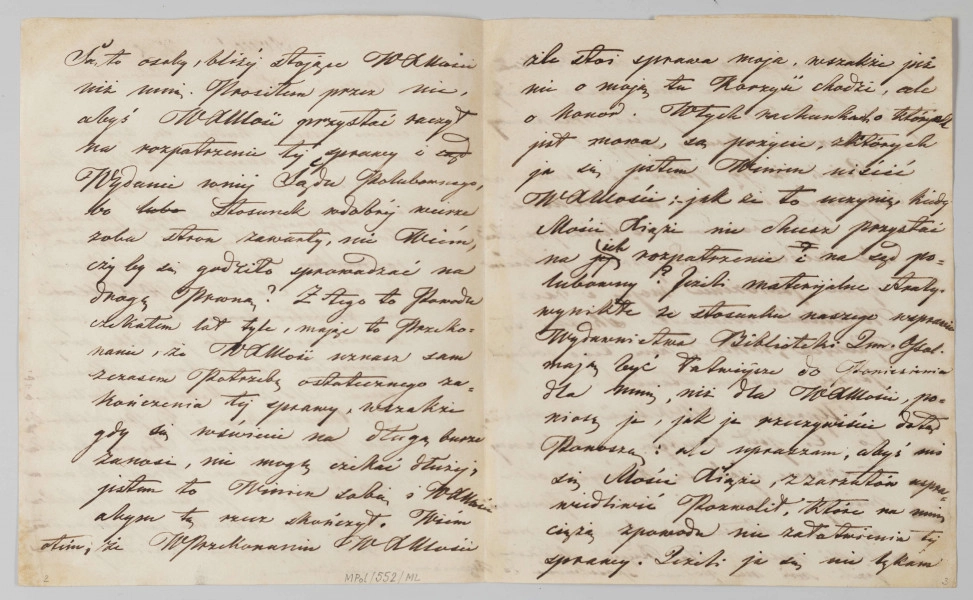 Są to osoby, bliżej stojące WAMości
niż mnie. Prosiłem przez nie,
abyś WAMość przystać raczył
na rozpatrzenie tej sprawy i
Wydanie w niej Sądu Polubownego,
bo Stosunek w dobrej wierze
z obu stron zawarty, nie Wiem,
czy by się godziło sprowadzać na
drogę Prawną? Z tego to Powodu
czekałem lat tyle, mając to Przeko-
nanie, że WAMość uznasz sam
z czasem Potrzebę ostatecznego za-
kończenia tej sprawy, wszakże
gdy się w świecie na długą burzę
zanosi, nie mogę czekać dłużej,
jestem to Winien sobie i WAMości
abym tę rzecz skończył. Wiem
o tém, że W Przekonaniu WAMości
źle stoi sprawa moja, wszakże już
nie o moją tu Korzyść chodzi, ale
o honor. W tych rachunkach, o których
jest mowa, są pozycie, z których
ja się jestem Winien uiścić
WAMości; jak że to uczynię, kiedy
Mości Książe nie chcesz przystać
na ich rozpatrzenie i na sąd po-
lubowny? Jeżeli materijalne Straty
wynikłe ze stosunku naszego względem
Wydawnictwa Biblioteki Im. Ossol.
mają być łatwiejsze do Poniesienia
dla mnie, niż dla WAMości, po-
niosę je, jak je rzeczywiście dotąd
Ponoszę: ale upraszam, abyś mi
się Mości Książe, z zarzutów uspra-
wiedliwić Pozwolił, które na mnie
ciężą z powodu nie załatwienia tej
sprawy. Jeżeli ja się nie lękam
2
MPol/552/ML
3